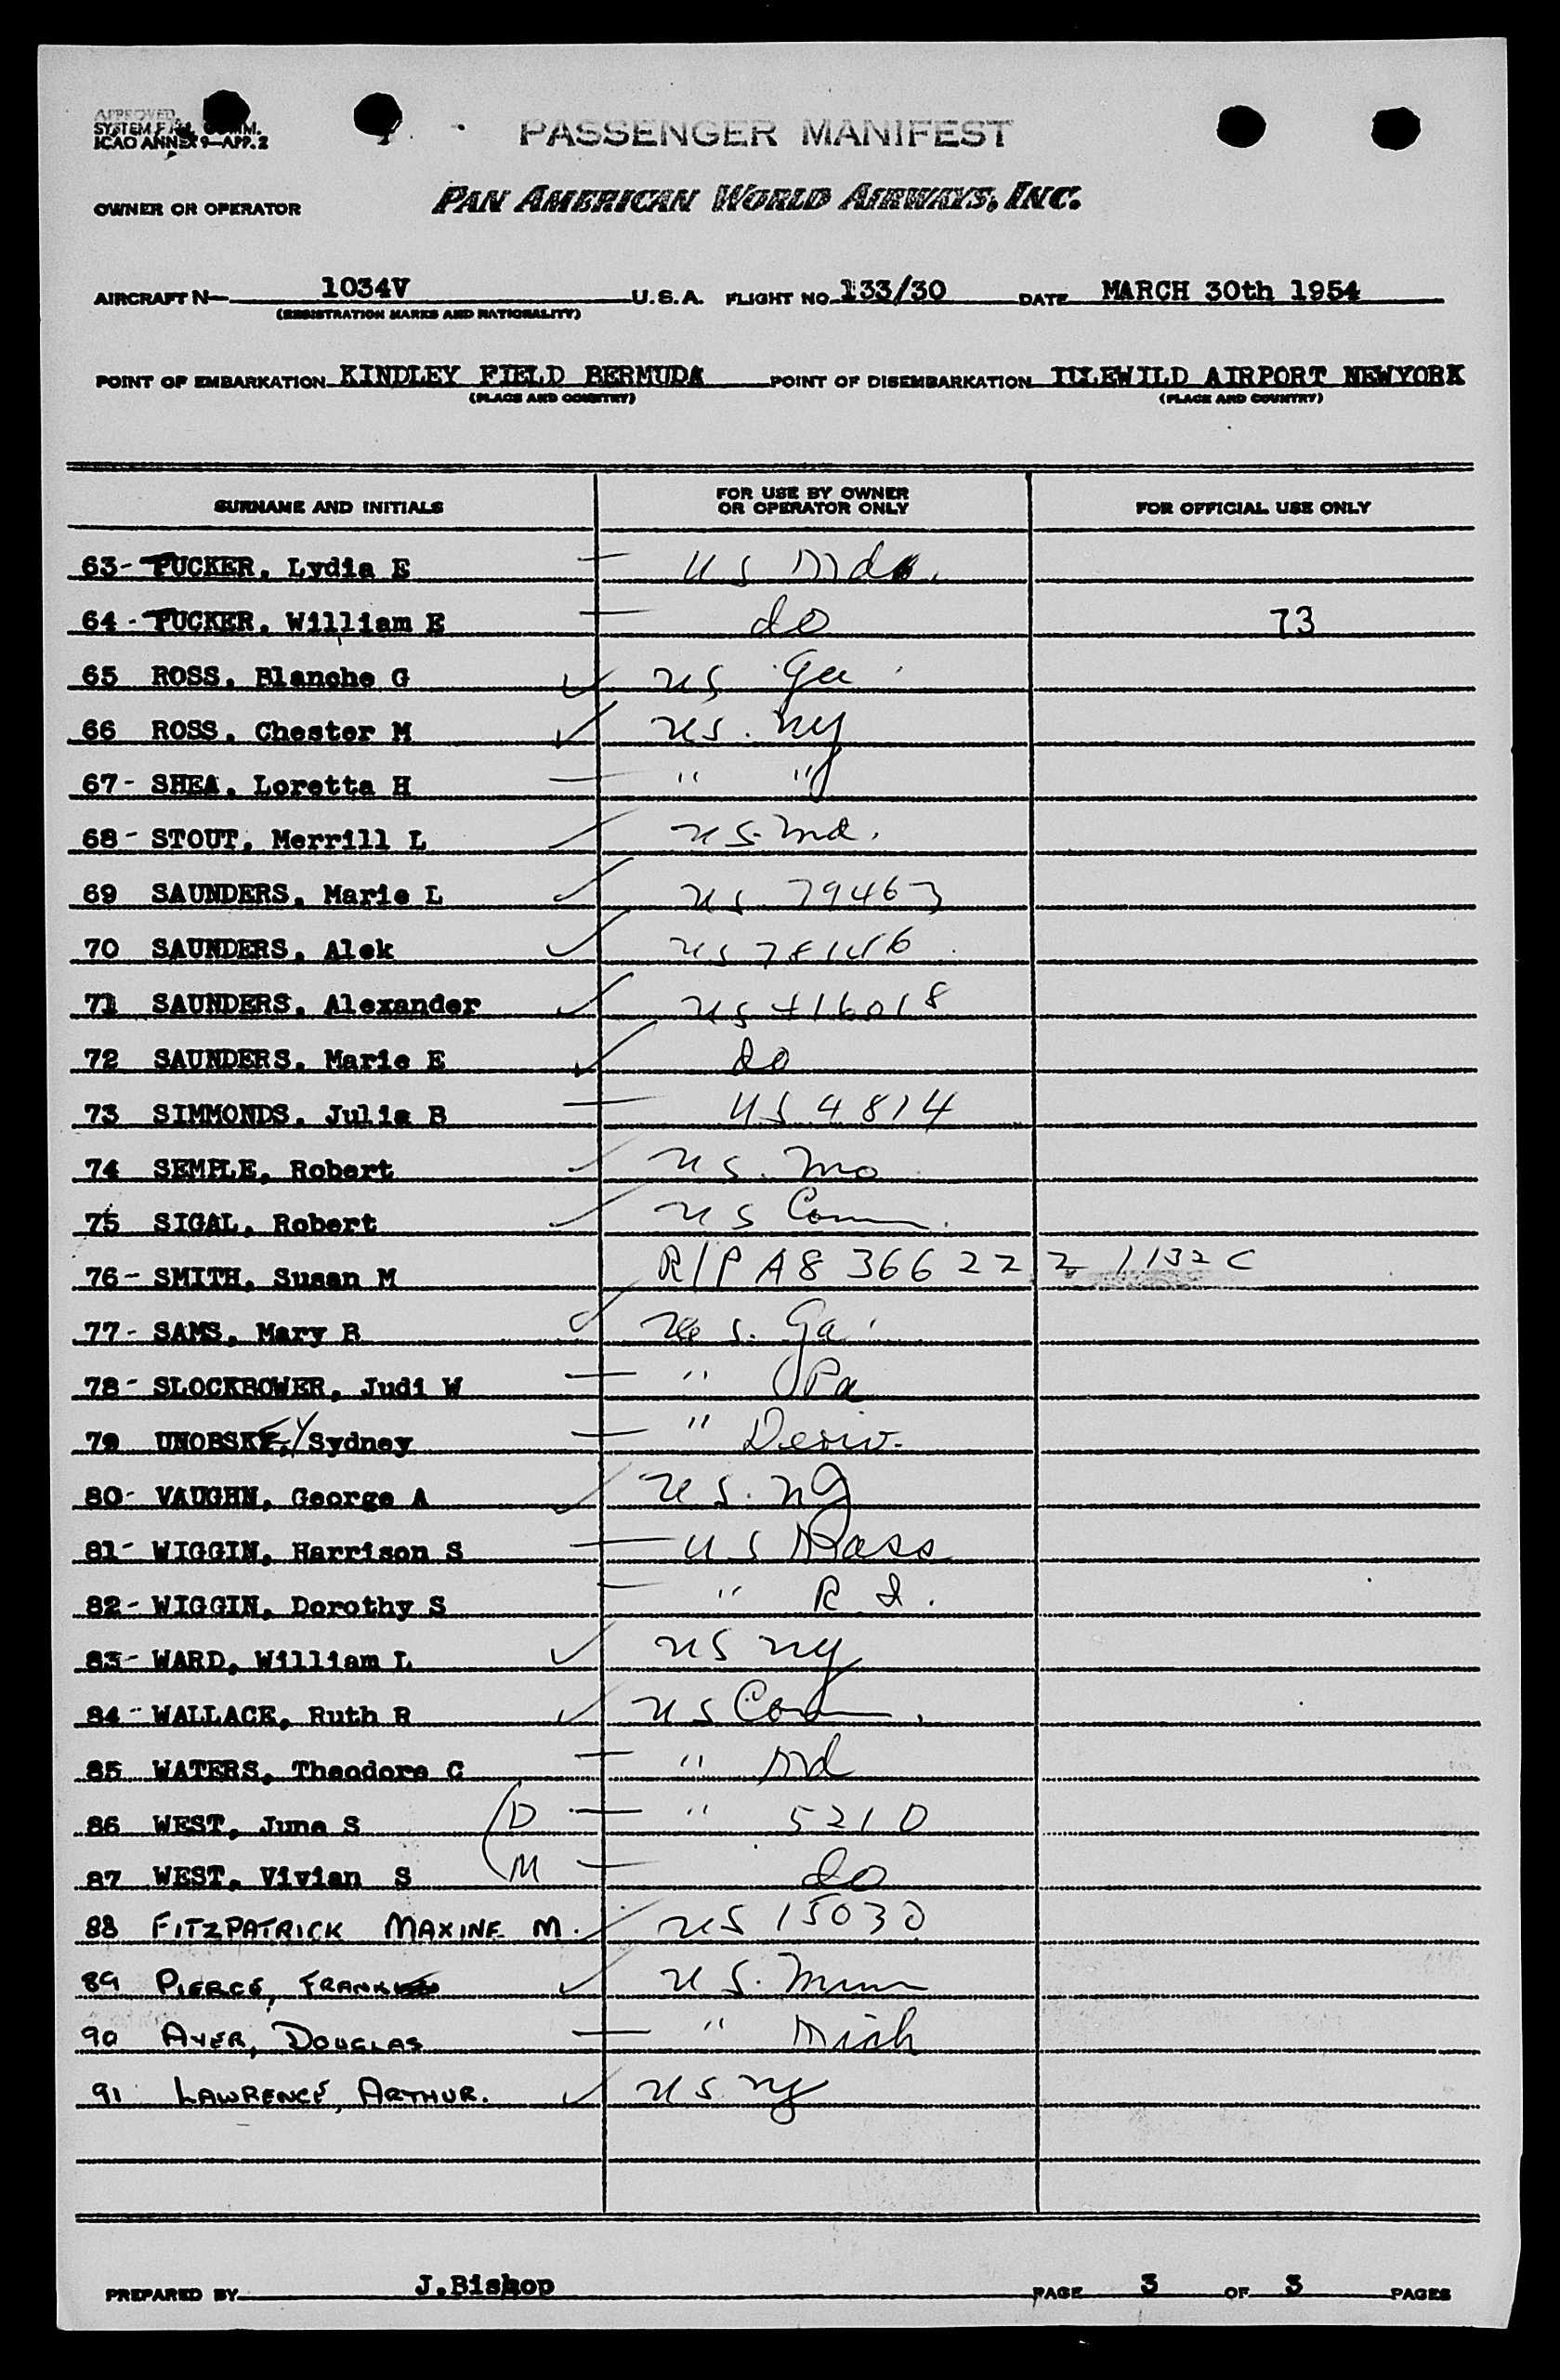 APPROVED
SYSTEM FAL COMM.
ICAO ANNEX 9—APP. 2
PASSENGER MANIFEST
OWNER OR OPERATOR PAN AMERICAN WORLD AIRWAYS, INC.
AIRCRAFT N— 1034V U.S.A. FLIGHT NO. 133/30 DATE MARCH 30th 1954
(REGISTRATION MARKS AND NATIONALITY)
POINT OF EMBARKATION KINDLEY FIELD BERMUDA POINT OF DISEMBARKATION IDLEWILD AIRPORT NEWYORK
(PLACE AND COUNTRY) (PLACE AND COUNTRY)
SURNAME AND INITIALS FOR USE BY OWNER OR OPERATOR ONLY FOR OFFICIAL USE ONLY
63- TUCKER, Lydia E — US
64- TUCKER, William E — do 73
65 ROSS, Blanche G ✓ US Ga
66 ROSS, Chester M ✓ US. NY
67- SHEA, Loretta H — " "
68- STOUT, Merrill L ✓ US. Md.
69 SAUNDERS, Marie L ✓ US 79463
70 SAUNDERS, Alek ✓ US
71 SAUNDERS, Alexander ✓ US 416018
72 SAUNDERS, Marie E ✓ do
73 SIMMONDS, Julia B — US 4814
74 SEMPLE, Robert ✓ US. Mo
75 SIGAL, Robert ✓ US Conn.
76- SMITH, Susan M R/P A8 366 222 1132 C
77- SAMS, Mary B ✓ US. Ga.
78- SLOCKBOWER, Judi W — " Pa
79 UNOBSKEY, Sydney — " Deriv.
80- VAUGHN, George A ✓ US. NY
81- WIGGIN, Harrison S — US Mass
82- WIGGIN, Dorothy S — " R I.
83- WARD, William L ✓ US NY
84- WALLACE, Ruth R ✓ US Conn.
85 WATERS, Theodore C — " Md
86 WEST, June S (D — " 5210
87 WEST, Vivian S (M — do
88 FITZPATRICK MAXINE M. ✓ US 15030
89 PIERCE, FRANK ✓ US. Minn
90 AYER, DOUGLAS — " Mich
91 LAWRENCE, ARTHUR. ✓ US NY
PREPARED BY J.Bishop PAGE 3 OF 3 PAGES